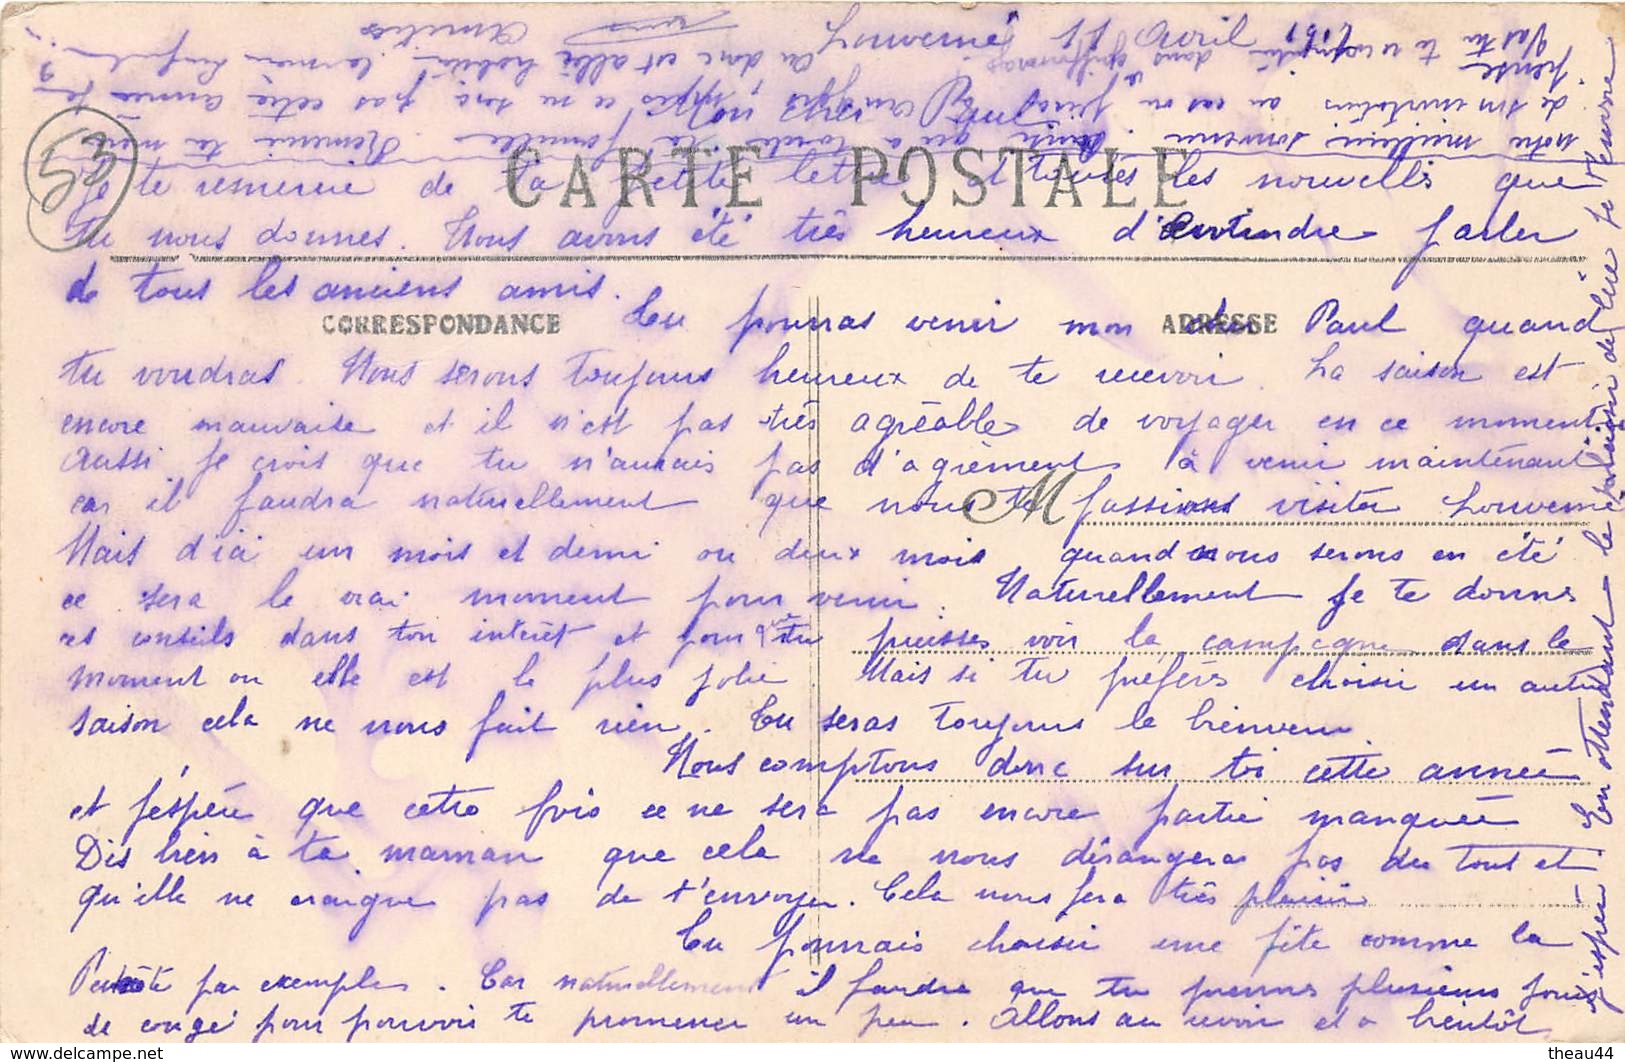 Louverné 11 Avril 1911
Mon cher Paul
CARTE POSTALE
Je te remercie de ta petite lettre et toutes les nouvelles que
tu nous donnes. Nous avons été très heureux d'entendre parler
de tous les anciens amis.
CORRESPONDANCE
ADRESSE
Tu pourras venir mon cher Paul quand
tu voudras. Nous serons toujours heureux de te recevoir. La saison est
encore mauvaise et il n'est pas très agréable de voyager en ce moment
Aussi je crois que tu n'aurais pas d'agrément à venir maintenant
car il faudra naturellement que nous te fassions visiter Louverné
M
Mais d'ici un mois et demi ou deux mois quand nous serons en été
ce sera le vrai moment pour venir. Naturellement je te donne
ces conseils dans ton intérêt et pour que tu puisses voir la campagne dans le
moment ou elle est le plus jolie. Mais si tu préfères choisir un autre
saison cela ne nous fait rien. Tu seras toujours le bienvenu
Nous comptons donc sur toi cette année
et j'espère que cette fois ce ne sera pas encore partie manquée
Dis bien à ta maman que cela ne nous dérangera pas du tout et
qu'elle ne craigne pas de t'envoyer. Cela nous fera très plaisir
Tu pourrais choisir une fête comme la
Pentecôte par exemple. Car naturellement il faudra que tu prennes plusieurs jours
de congé pour pouvoir te promener un peu. Allons au revoir et a bientôt
j'espère. En attendant le plaisir de te lire je remercie
notre meilleur souvenir ainsi qu'a toute la famille Remercie ta mère
de son invitation au cas où
53
theau44